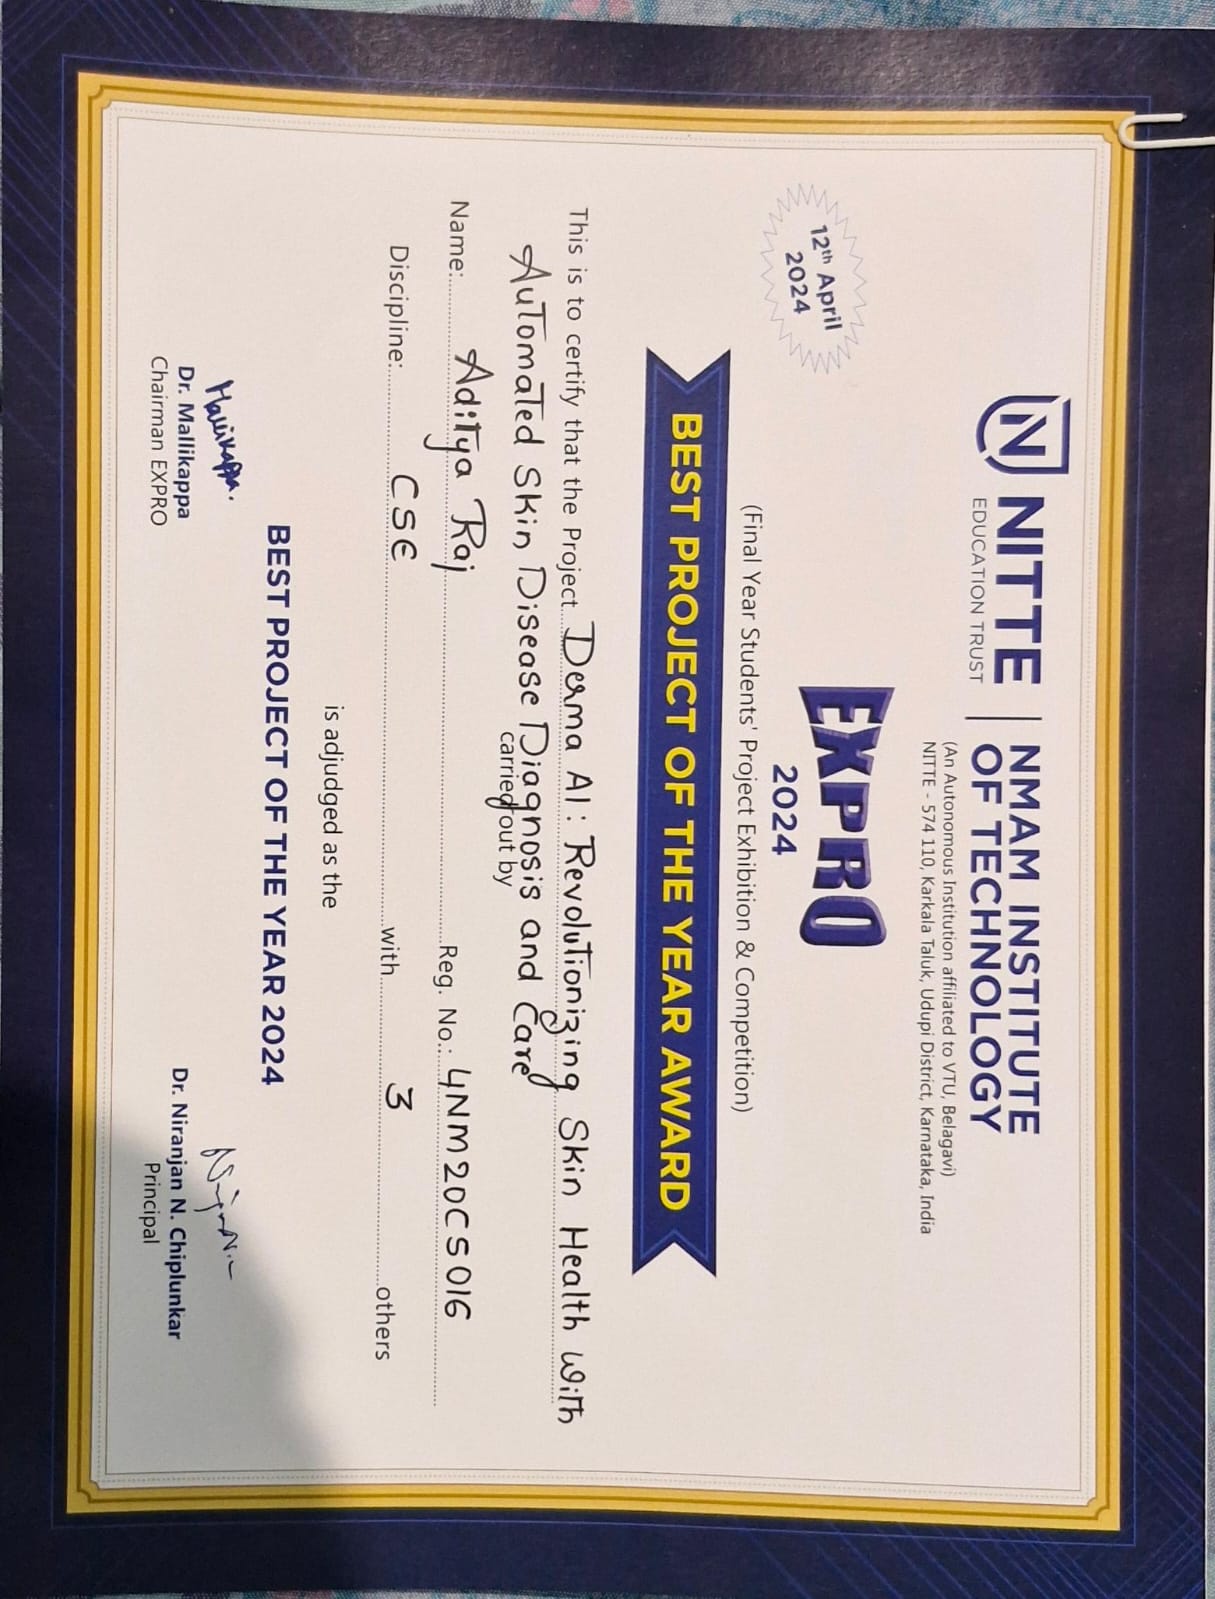 NITTE
EDUCATION TRUST
NMAM INSTITUTE
OF TECHNOLOGY
(An Autonomous Institution affiliated to VTU, Belagavi)
NITTE - 574 110, Karkala Taluk, Udupi District, Karnataka, India
12th April
2024
EXPRO
2024
(Final Year Students' Project Exhibition & Competition)
BEST PROJECT OF THE YEAR AWARD
This is to certify that the Project Derma AI: Revolutionizing Skin Health with
Automated Skin Disease Diagnosis and Care
carried out by
Name: Aditya Raj Reg. No.: 4NM20CS016
Discipline: CSE with 3 others
is adjudged as the
BEST PROJECT OF THE YEAR 2024
Mallikappa.
Dr. Mallikappa
Chairman EXPRO
Dr. Niranjan N. Chiplunkar
Principal